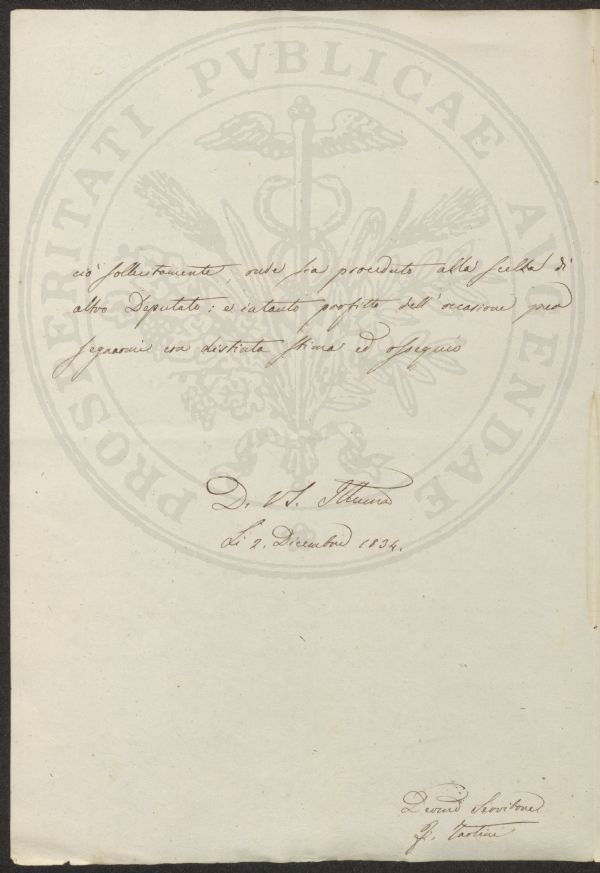 PROSPERITATI PVBLICAE AVGENDAE
ciò sollecitamente, onde sia proceduto alla scelta di
altro Deputato: e intanto profitto dell'occasione per
segnarmi con distinta stima ed ossequio
D. VS. Illuma
Li 2. Dicembre 1834.
Devmo Servitore
F. Tartini